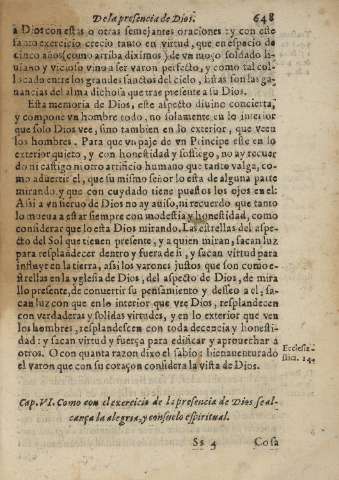 De la presencia de Dios. 648
a Dios con estas o otras semejantes oraciones: y con este
santo exercicio crecio tanto en virtud, que en espacio de
cinco años (como arriba diximos) de vn moço soldado li-
uiano y vicioso vino a ser varon perfecto, y como tal col-
locado entre los grandes sanctos del cielo, Estas son las ga-
nancias del alma dichosa que trae presente a su Dios.
Esta memoria de Dios, este aspecto diuino concierta,
y compone vn hombre todo, no solamente en lo interior
que solo Dios vee, sino tambien en lo exterior, que veen
los hombres. Para que vn paje de vn Principe este en lo
exterior quieto, y con honestidad y sossiego, no ay recuer
do ni castigo ni otro artificio humano que tanto valga, co-
mo aduertir el, que su mismo señor lo esta de alguna parte
mirando y que con cuydado tiene puestos los ojos en el:
Assi a vn sieruo de Dios no ay auiso, ni recuerdo que tanto
lo mueua a estar siempre con modestia y honestidad, como
considerar que lo esta Dios mirando. Las estrellas del aspe-
cto del Sol que tienen presente, y a quien miran, sacan luz
para resplandecer dentro y fuera de si, y sacan virtud para
influyr en la tierra, assi los varones justos que son como e-
strellas en la yglesia de Dios, del aspecto de Dios, de mira
llo presente, de conuertir su pensamiento y desseo a el, sa-
can luz con que en lo interior que vee Dios, resplandecen
con verdaderas y solidas virtudes, y en lo exterior que ven
los hombres, resplandescen con toda decencia y honesti-
dad: y sacan virtud y fuerça para edificar y aprouechar a
otros. O con quanta razon dixo el sabio: bienauenturado
el varon que con su coraçon considera la vista de Dios.
Ecclesia-
stica. 14.
Cap. VI. Como con el exercicio de la presencia de Dios se al-
cança la alegria, y consuelo espiritual.
Ss 4 Cosa